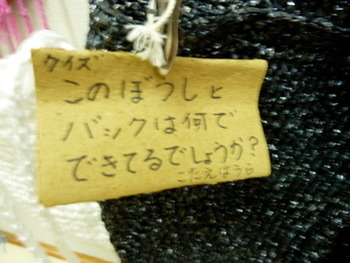 クイズ
このぼうしと
バックは何で
できてるでしょうか?
こたえはうら